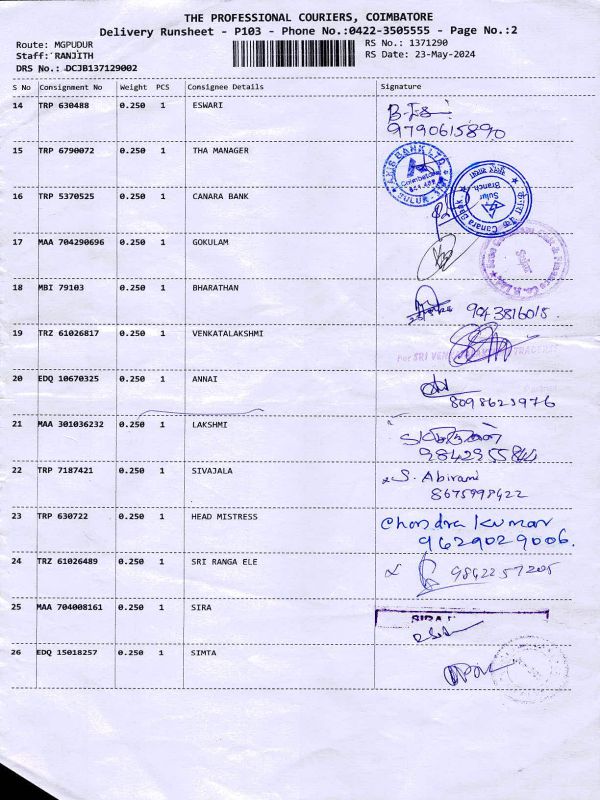 THE PROFESSIONAL COURIERS, COIMBATORE
Delivery Runsheet - P103 - Phone No.:0422-3505555 - Page No.:2
Route: MGPUDUR RS No.: 1371290
Staff: RANJITH RS Date: 23-May-2024
DRS No.: DCJB137129002
S No Consignment No Weight PCS Consignee Details Signature
14 TRP 630488 0.250 1 ESWARI
9790615890
15 TRP 6790072 0.250 1 THA MANAGER
AXIS BANK LTD.
Coimbatore
SULUR
16 TRP 5370525 0.250 1 CANARA BANK
Canara Bank
Sulur
Branch
17 MAA 704290696 0.250 1 GOKULAM
Sulur
18 MBI 79103 0.250 1 BHARATHAN
9043816015
19 TRZ 61026817 0.250 1 VENKATALAKSHMI
For SRI
20 EDQ 10670325 0.250 1 ANNAI
8098623976
21 MAA 301036232 0.250 1 LAKSHMI
22 TRP 7187421 0.250 1 SIVAJALA
S. Abirami
8675998422
23 TRP 630722 0.250 1 HEAD MISTRESS
Chandra Kumar
9629029006.
24 TRZ 61026489 0.250 1 SRI RANGA ELE
9842257205
25 MAA 704008161 0.250 1 SIRA
26 EDQ 15018257 0.250 1 SIMTA